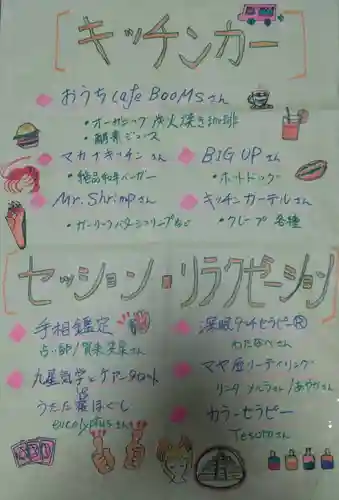 キッチンカー
おうち Cafe BooMs.さん
・オーガニック 炭火焼き珈琲
・酵素ジュース
マカナキッチン さん
・絶品和牛バーガー
BIG UP さん
・ホットドッグ
Mr. Shrimpさん
・ガーリックバターシュリンプなど
キッチンカーテルさん
・クレープ 各種
セッション・リラクゼーション
手相鑑定
占い師/
さん
九星気学とケアンタロット
うたた寝ほぐし
eucalyptusさん
深眠タッチセラピー®
わたなべさん
マヤ暦リーディング
さん/あやかさん
カラーセラピー
Tesoroさん